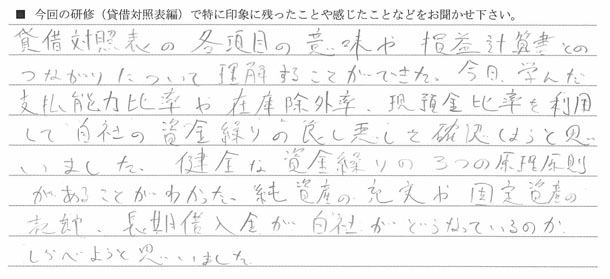 ■ 今回の研修(貸借対照表編)で特に印象に残ったことや感じたことなどをお聞かせ下さい。
貸借対照表の各項目の意味や損益計算書との
つながりについて理解することができた。今日、学んだ
支払能力比率や在庫除外率、現預金比率を利用
して自社の資金繰りの良し悪しを確認しようと思
いました。健全な資金繰りの3つの原理原則
があることがわかった。純資産の充実や固定資産の
、長期借入金が自社がどうなっているのか
しらべようと思いました。